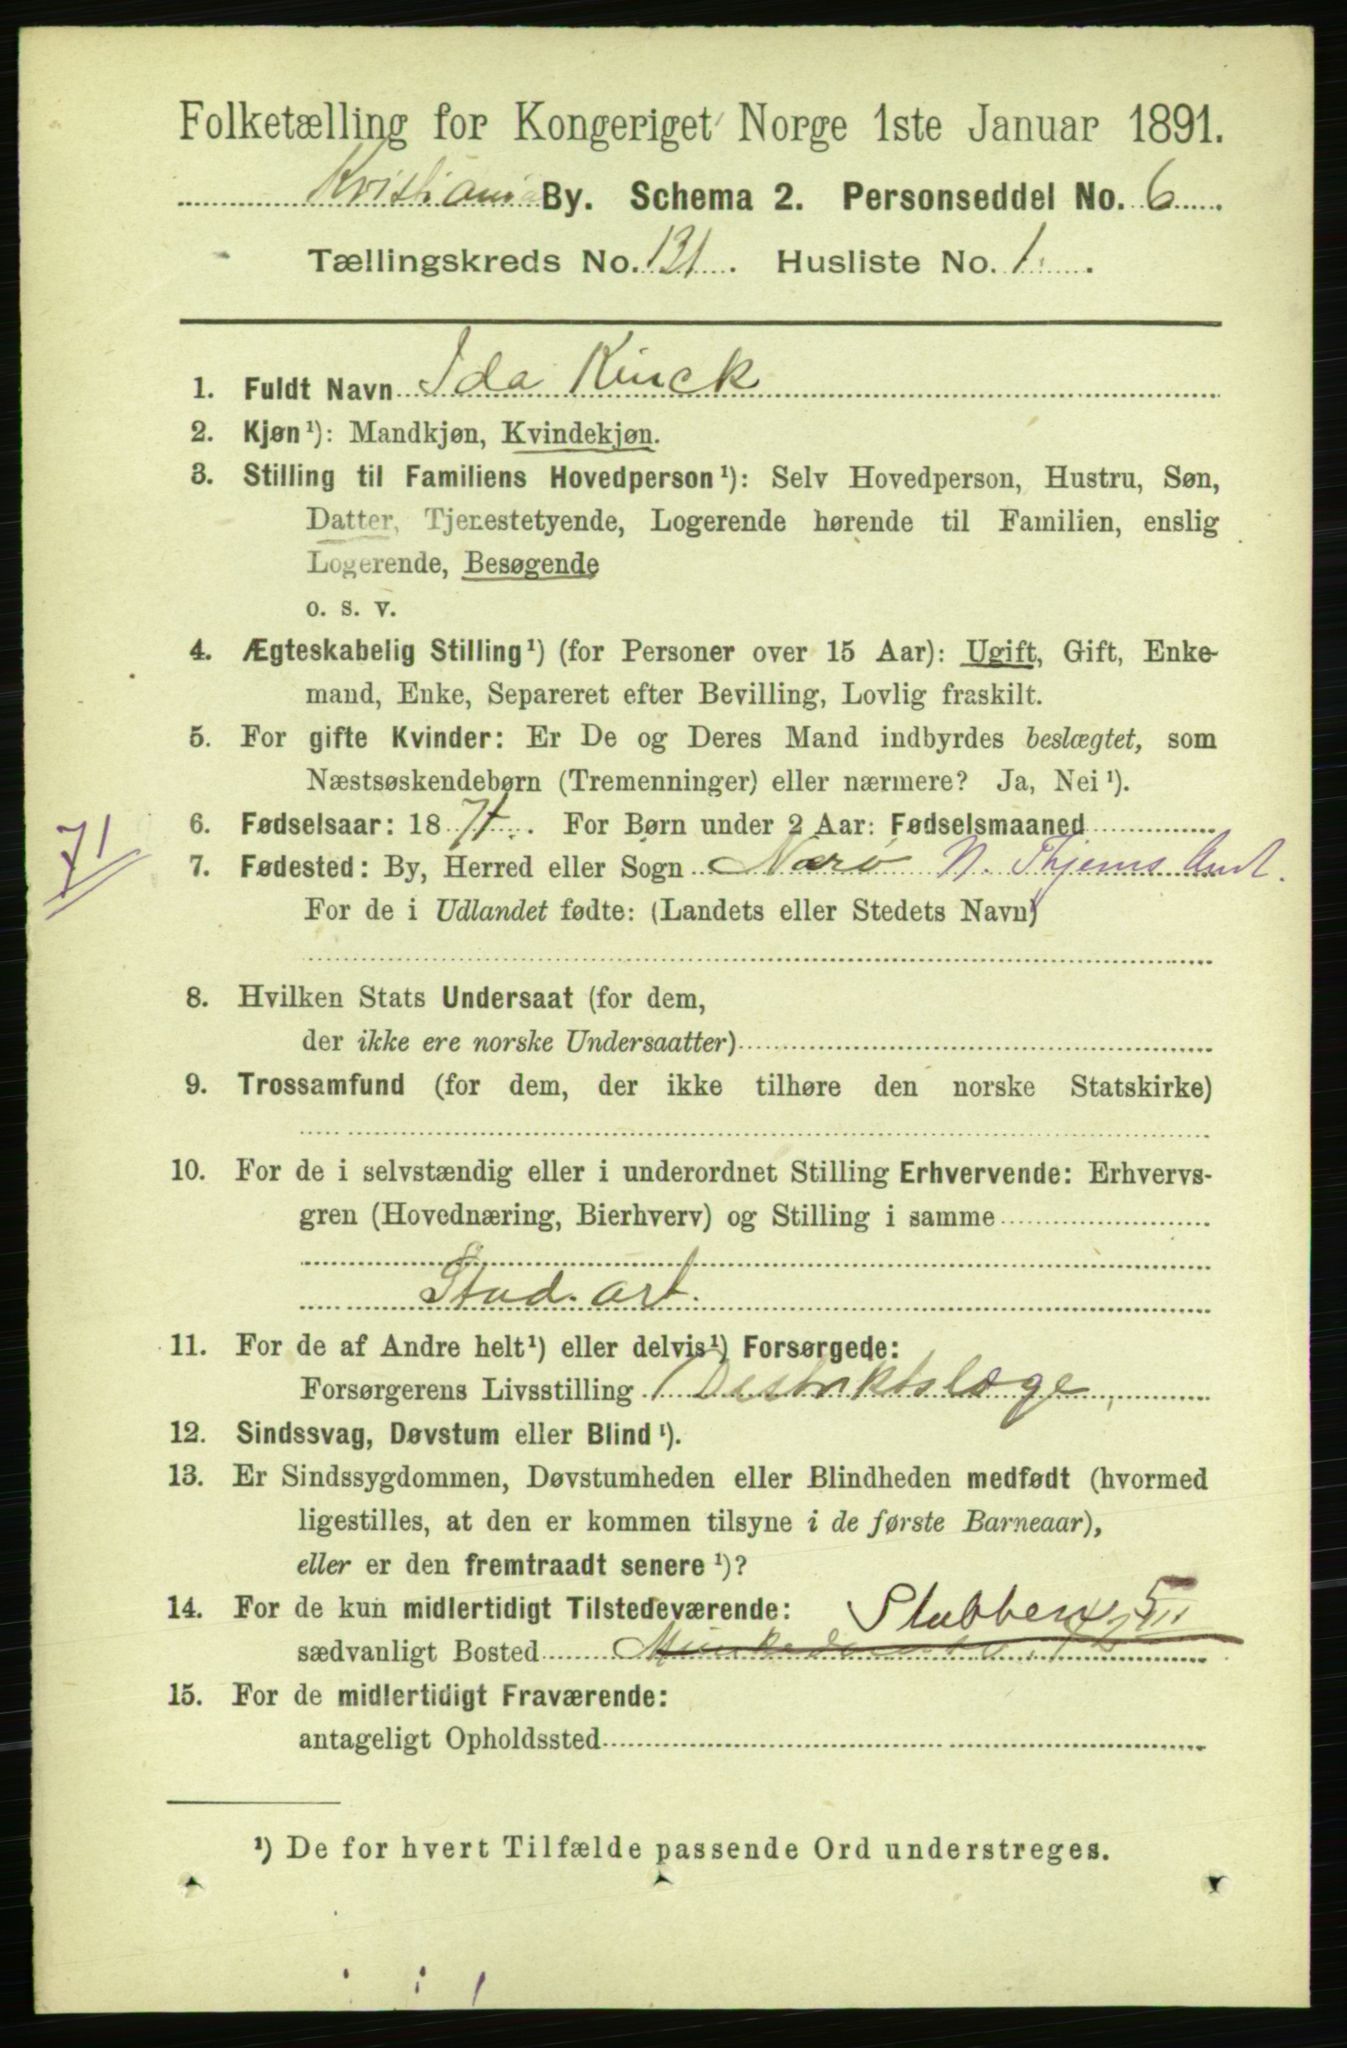 Folketælling for Kongeriget Norge 1ste Januar 1891.
Kristiania By. Schema 2. Personseddel No. 6
Tællingskreds No. 131. Husliste No. 1.
1. Fuldt Navn Ida Kinck
2. Kjøn¹): Mandkjøn, Kvindekjøn.
3. Stilling til Familiens Hovedperson¹): Selv Hovedperson, Hustru, Søn,
Datter, Tjenestetyende, Logerende hørende til Familien, enslig
Logerende, Besøgende
o. s. v.
4. Ægteskabelig Stilling¹) (for Personer over 15 Aar): Ugift, Gift, Enke-
mand, Enke, Separeret efter Bevilling, Lovlig fraskilt.
5. For gifte Kvinder: Er De og Deres Mand indbyrdes beslægtet, som
Næstsøskendebørn (Tremenninger) eller nærmere? Ja, Nei¹).
71
6. Fødselsaar: 1871. For Børn under 2 Aar: Fødselsmaaned
7. Fødested: By, Herred eller Sogn Nærø N. Thjems Amt.
For de i Udlandet fødte: (Landets eller Stedets Navn)
8. Hvilken Stats Undersaat (for dem,
der ikke ere norske Undersaatter)
9. Trossamfund (for dem, der ikke tilhøre den norske Statskirke)
10. For de i selvstændig eller i underordnet Stilling Erhvervende: Erhvervs-
gren (Hovednæring, Bierhverv) og Stilling i samme
Stud. art.
11. For de af Andre helt¹) eller delvis¹) Forsørgede:
Forsørgerens Livsstilling Distriktslæge
12. Sindssvag, Døvstum eller Blind¹).
13. Er Sindssygdommen, Døvstumheden eller Blindheden medfødt (hvormed
ligestilles, at den er kommen tilsyne i de første Barneaar),
eller er den fremtraadt senere¹)?
14. For de kun midlertidigt Tilstedeværende: 5 III
sædvanligt Bosted
15. For de midlertidigt Fraværende:
antageligt Opholdssted
¹) De for hvert Tilfælde passende Ord understreges.